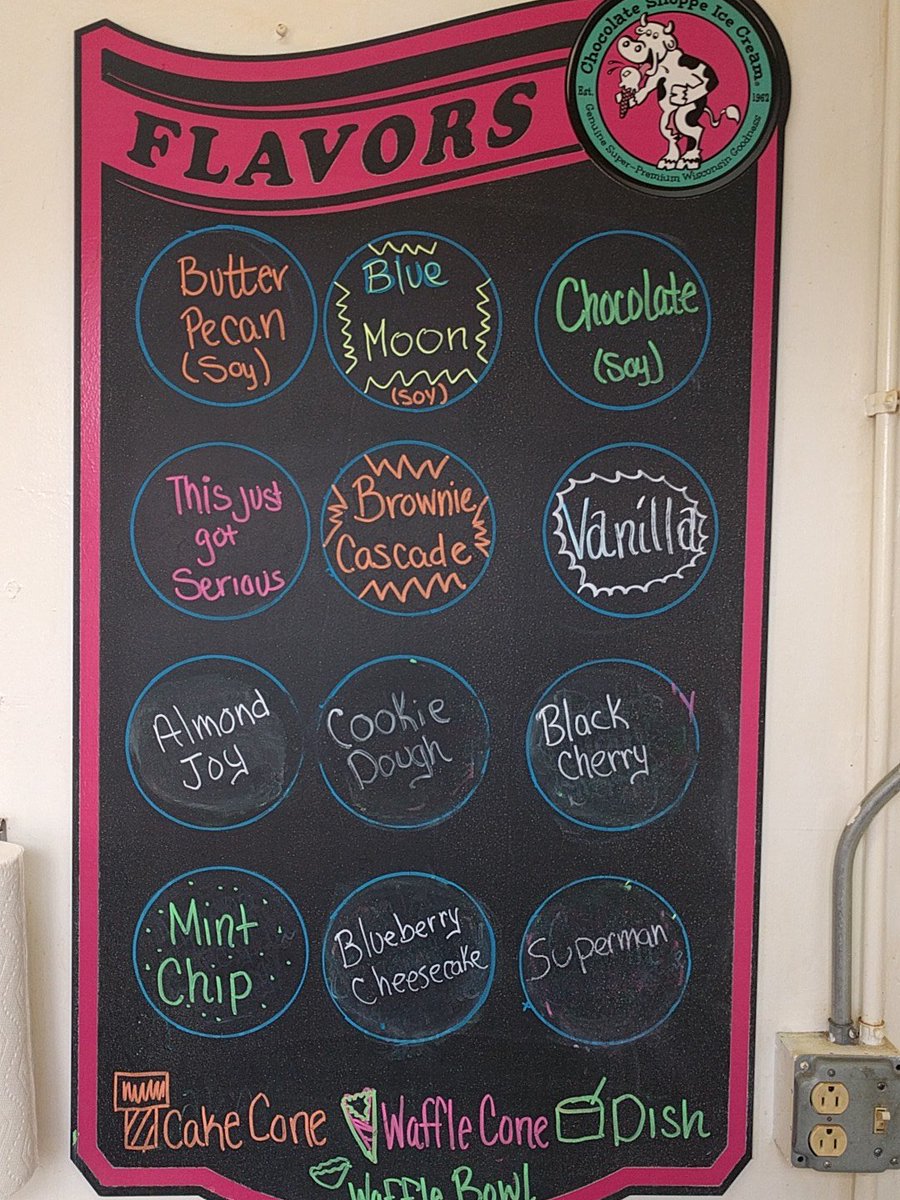 Chocolate Shoppe Ice Cream®
Est. 1962
Genuine Super-Premium Wisconsin Goodness
FLAVORS
Butter
Pecan
(Soy)
Blue
Moon
(SOY)
Chocolate
(Soy)
This just
got
Serious
Brownie
Cascade
Vanilla
Almond
Joy
Cookie
Dough
Black
Cherry
Mint
Chip
Blueberry
Cheesecake
Superman
Cake Cone
Waffle Cone
Dish
Waffle Bowl